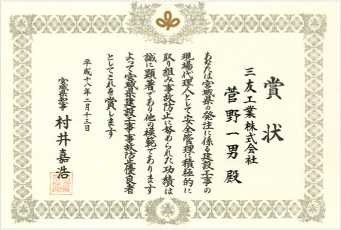 賞状
三友工業株式会社
菅野一男 殿
あなたは宮城県の発注に係る建設工事の
現場代理人として安全管理に積極的に
取り組み事故防止に努められた功績は
誠に顕著であり他の模範であります
よって宮城県建設工事事故防止優良者
としてこれを賞します
平成十八年二月十三日
宮城県知事 村井嘉浩